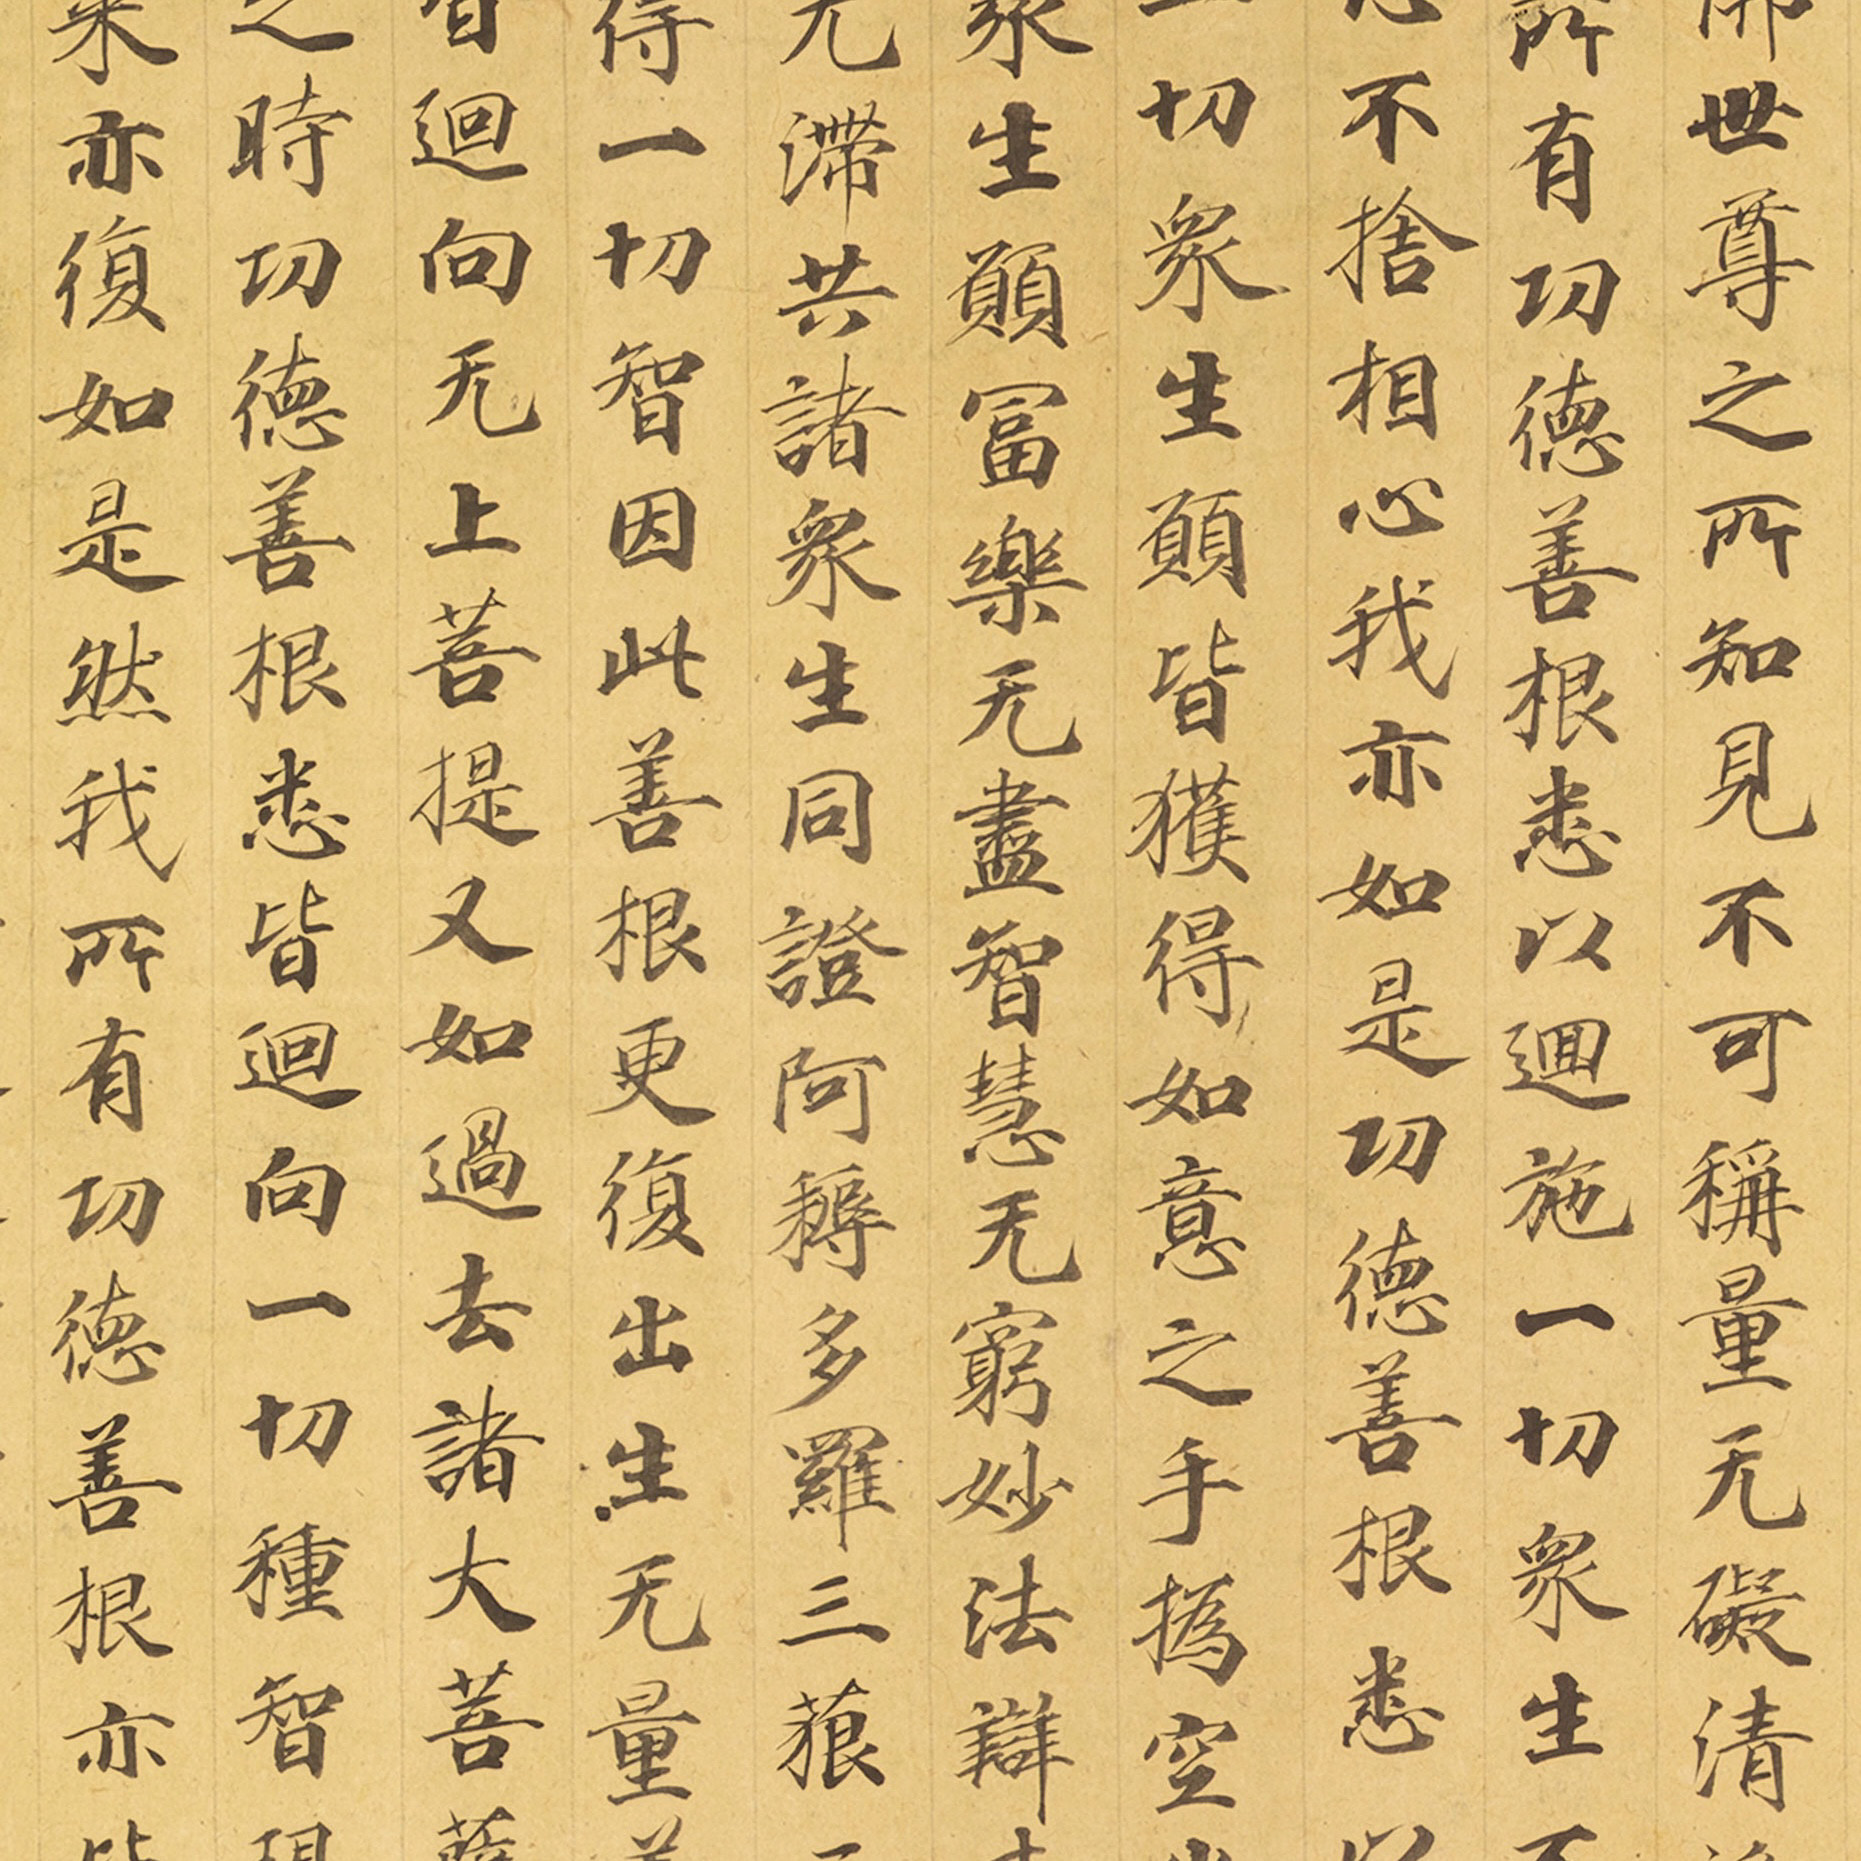 佛世尊之所知見不可稱量无礙清
所有功德善根悉以迴施一切眾生不
不捨相心我亦如是功德善根悉以
一切眾生願皆獲得如意之手撝空出
眾生願富樂无盡智慧无窮妙法辯
无滯共諸眾生同證阿耨多羅三藐三
得一切智因此善根更復出生无量善
皆迴向无上菩提又如過去諸大菩薩
之時功德善根悉皆迴向一切種智現
來亦復如是然我所有功德善根亦皆